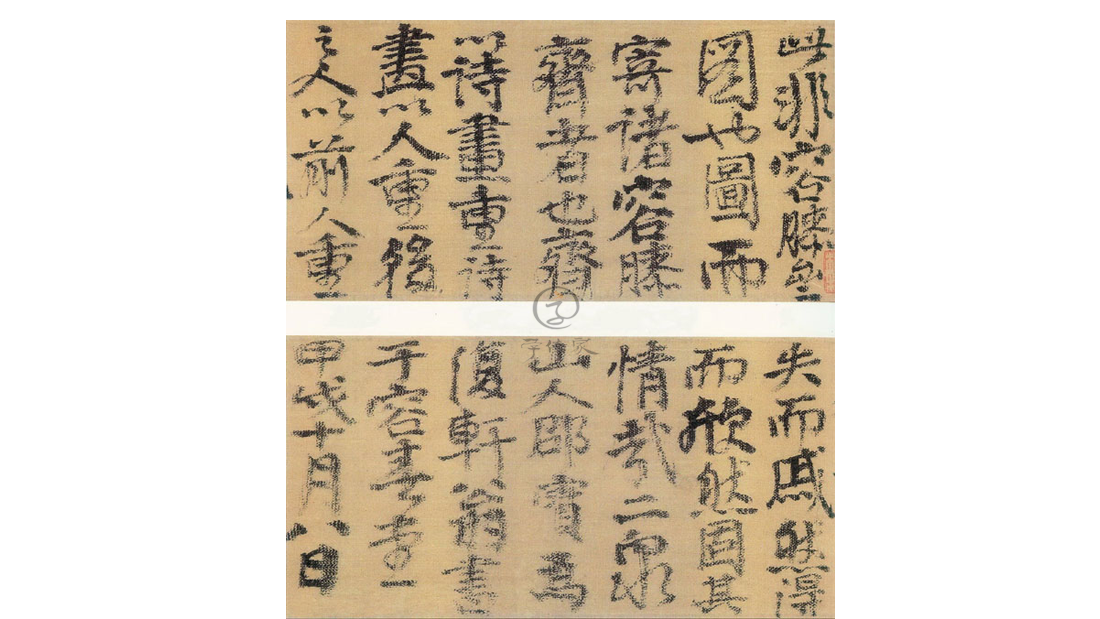 此非容膝
圖也圖而
寄諸容膝
齋者也齋
以詩畫重詩
畫以人重後
之人以前人重
失而戚然得
而欣然固其
情哉二泉
山人邵寶為
復軒翁書
于容春堂
甲戌十月八日